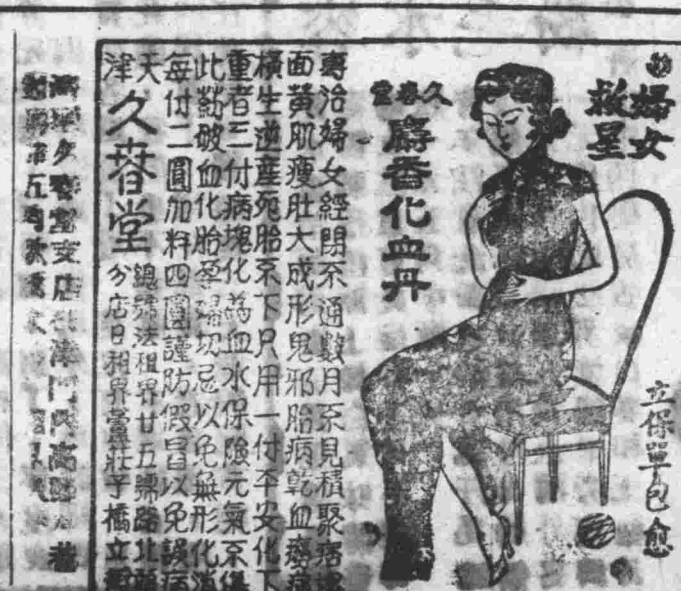 婦女
救星
久春堂
麝香化血丹
立保單包愈
專治婦女經閉不通數月不見積聚痞塊
面黃肌瘦肚大成形鬼邪胎病乾血癆病
橫生逆產死胎不下只用一付平安化下
重者三付病塊化為血水保險元氣不傷
此藥破血化胎孕婦切忌以免無形化消
每付二圓加料四圓謹防假冒以免誤病
天津
久春堂
總號法租界廿五號路北頭
分店日租界蘆莊子橋立
久春堂支店